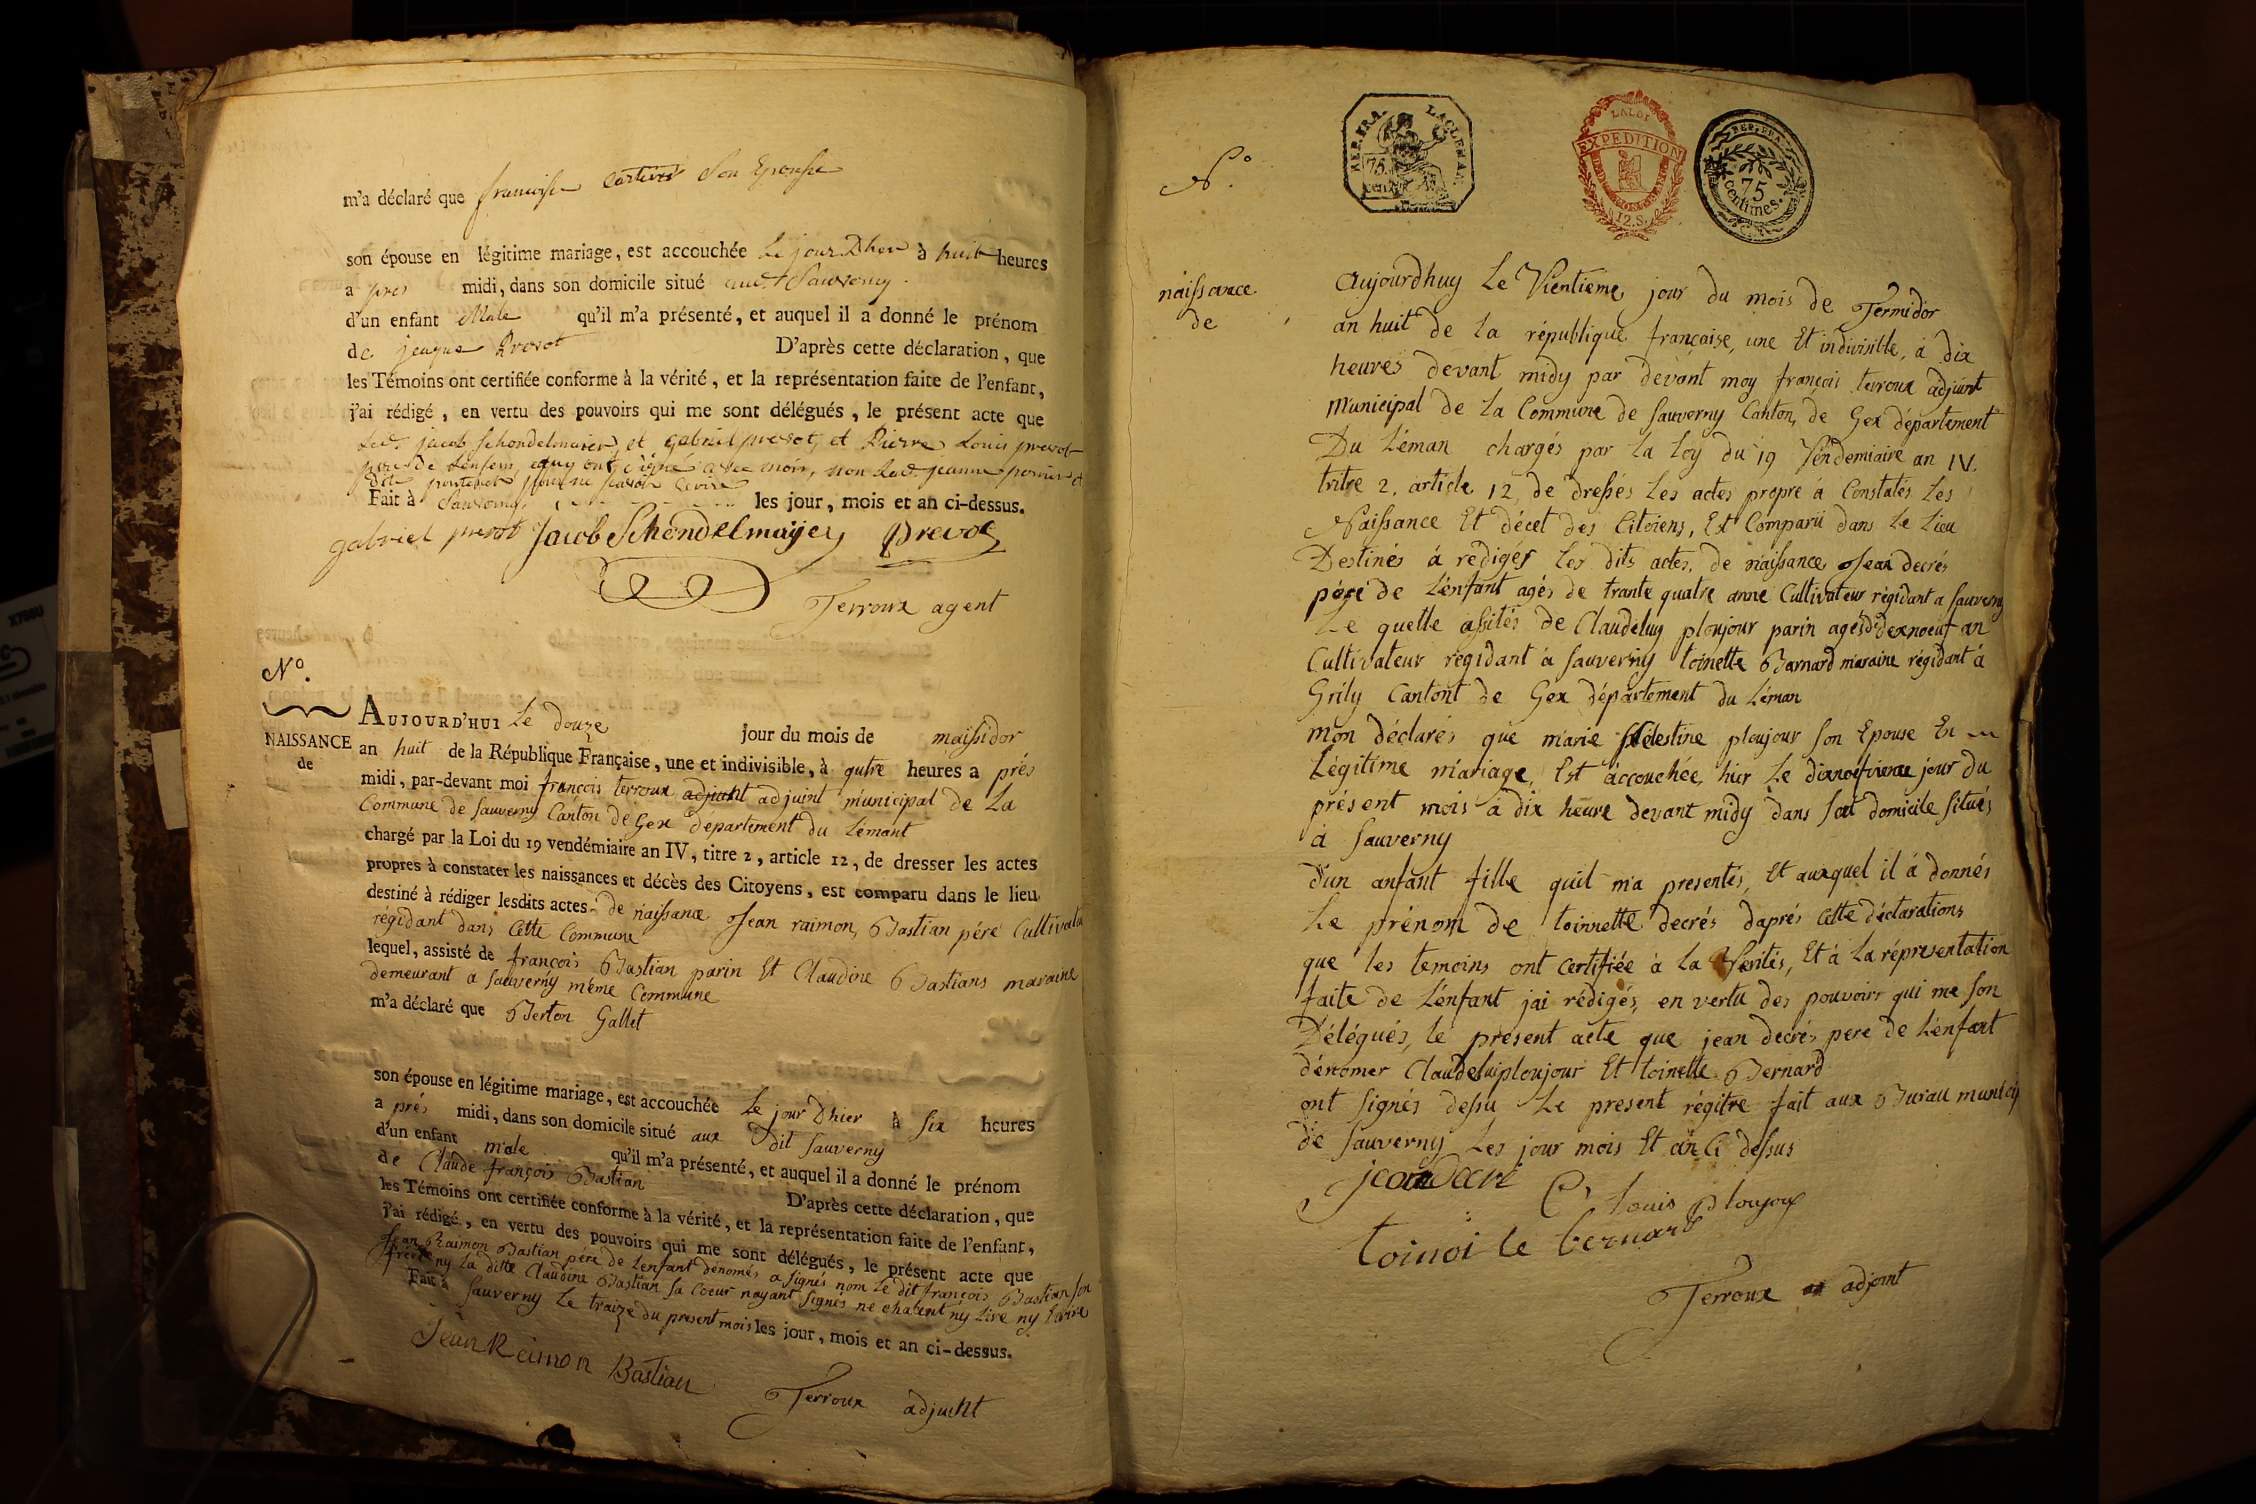 m'a déclaré que françoise son Epouse
son épouse en légitime mariage, est accouchée Le jour Dhier à huit heures
a pres midi, dans son domicile situé audt Sauverny.
d'un enfant Male qu'il m'a présenté, et auquel il a donné le prénom
de Prevot D'après cette déclaration, que
les Témoins ont certifiée conforme à la vérité, et la représentation faite de l'enfant,
j'ai rédigé, en vertu des pouvoirs qui me sont délégués, le présent acte que
jacob Schondelmaier et gabriel prevot, et Pierre Louis prevot
pere de Lenfent, et quy ont signé avec moy, non jeanne
Fait à Sauverny, les jour, mois et an ci-dessus.
gabriel prevot Jacob Schondelmayer Prevot
Terroux agent
N°.
NAISSANCE
de
AUJOURD'HUI Le douze jour du mois de maissidor
an huit de la République Française, une et indivisible, à qutre heures a prés
midi, par-devant moi françois terroux adjuint municipal de La
Commune de Sauverny Canton de Gex département du Lémant
chargé par la Loi du 19 vendémiaire an IV, titre 2, article 12, de dresser les actes
propres à constater les naissances et décès des Citoyens, est comparu dans le lieu
destiné à rédiger lesdits actes de naissance Jean raimon, Bastian pére Cultivateu
régidant dans Cette Commune
lequel, assisté de françois Bastian parin Et Claudine Bastians maraine
demeurant a Sauverny même Commune
m'a déclaré que Berton Gallet
son épouse en légitime mariage, est accouchée Le jour Dhier à six heures
a prés midi, dans son domicile situé aux dit Sauverny
d'un enfant male qu'il m'a présenté, et auquel il a donné le prénom
de Claude françois Bastian D'après cette déclaration, que
les Témoins ont certifiée conforme à la vérité, et la représentation faite de l'enfant,
j'ai rédigé, en vertu des pouvoirs qui me sont délégués, le présent acte que
Jean Raimon Bastian pére de Lenfant dénomés a signés nom Le dit françois Bastian son
frére ny La ditte Claudine Bastian sa Coeur nayant signés ne chatent ny Lire ny Ecrire
Fait à Sauverny Le traize du present mois les jour, mois et an ci-dessus.
Jean Reimon Bastian
Terroux adjuint
N°.
REP. FRA. LACLEMAN
75. cent.
LALOI
EXPEDITION
12.S.
REP. FRA.
75 centimes.
naissance
de
Aujourdhuy Le Vientieme jour du mois de Termidor
an huit de La république françaisse, une Et indivisible, à dix
heures devant midy par devant moy françois terroux adjuint
Municipal de La Commune de Sauverny Canton, de Gex département
Du Léman chargés par La Loy du 19 Vendemiaire an IV.
tritre 2. article 12, de dressés Les actes propre a Constatés Les
Naissance Et décet des Citoiens, Est Comparü dans Le Lieu
Destinés á redigés Les dits actes, de naissance Jean decrés
pére de L'enfant agés de trante quatre anne Cultivateur régidant a Sauverny
Le quelle assités de Claudeluy ploujour parin agés de dixnoeuf an
Cultivateur regidant a Sauverny toinette Barnard maraine régidant á
Grily Cantont de Gex département du Léman
mon déclarés que marie ploujour son Epouse En
Légitime mariage, Est accouchée hier Le dixnoefvieme jour du
présent mois á dix heure devant midy dans son domicile situés
à Sauverny
d'un anfant fille quil ma presentés, Et auxquel il á donnés
Le prénom de toinnette decrés daprés Cette déclarations
que les temoins ont certifiée à La Verités, Et á La répresentation
faite de L'enfant jai rédigés, en vertu des pouvoirs qui me son
Délégués, le present acte que jean decrés pere de L'enfant
dénomer Claudeluiploujour Et toinette Bernard
ont signés dessu Le present régitre fait aux Burau municip
de Sauverny Les jour mois Et an Ci dessus
jean Decré C, Louis ploujour
toinoi le bernard
Terroux adjoint